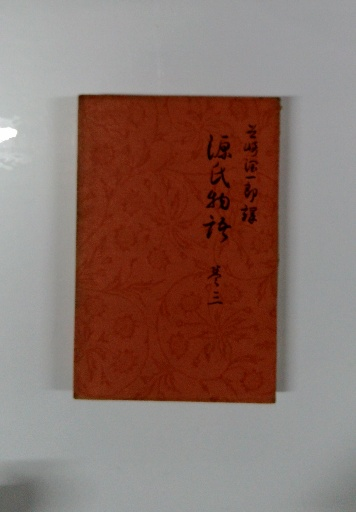 谷崎潤一郎譯
源氏物語
巻三